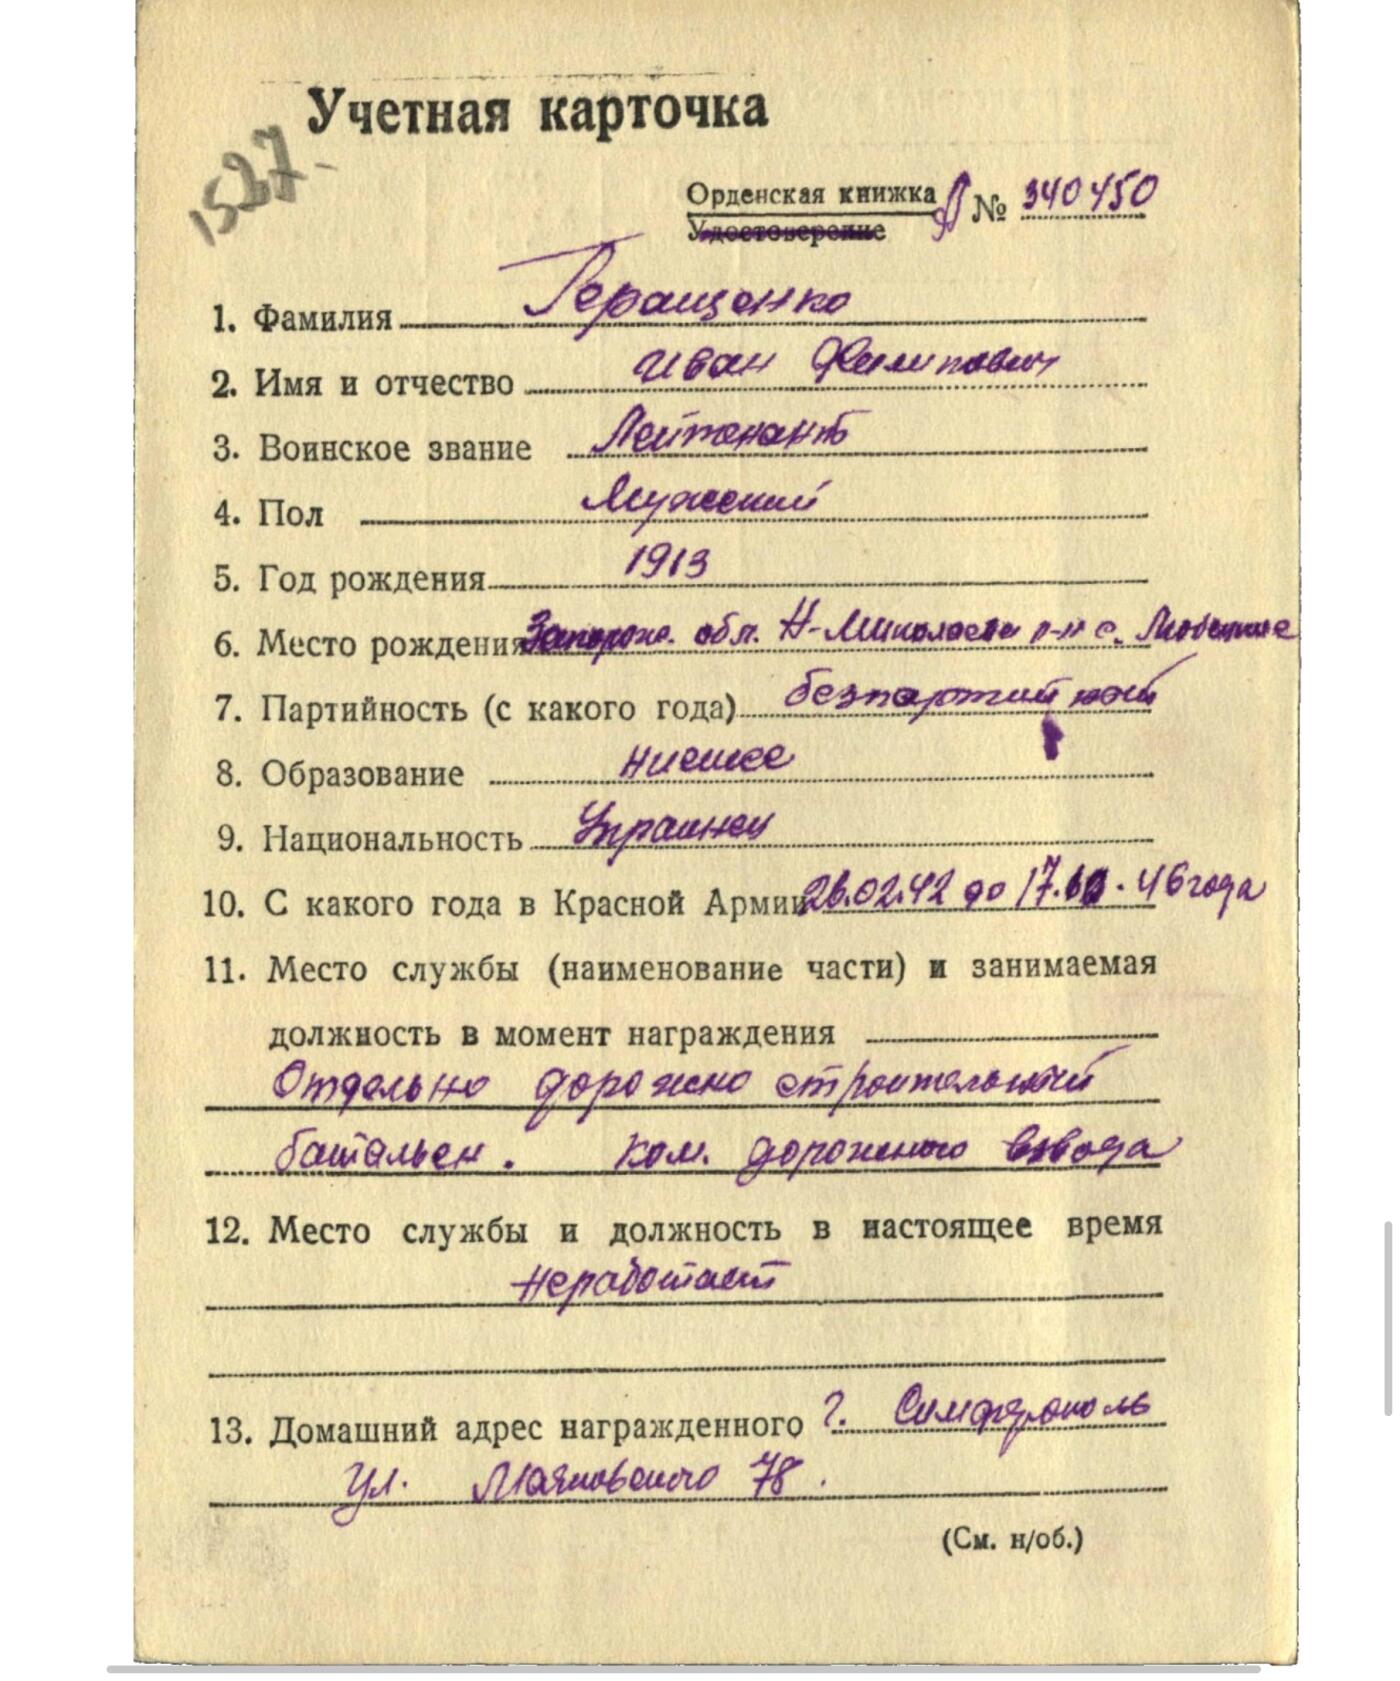 Учетная карточка
1527-
Орденская книжка № 340450
Удостоверение
1. Фамилия Геращенко
2. Имя и отчество Иван Филипович
3. Воинское звание Лейтенант
4. Пол Мужский
5. Год рождения 1913
6. Место рождения Запорож. обл. Н-Миколаев р-н с.
7. Партийность (с какого года) безпартийный
8. Образование низшее
9. Национальность Украинец
10. С какого года в Красной Армии 26.02.42 до 46 года
11. Место службы (наименование части) и занимаемая
должность в момент награждения
Отдельно дорожно строительный
батальен. Ком. дорожного взвода
12. Место службы и должность в настоящее время
неработает
13. Домашний адрес награжденного г. Симферополь
ул. Маяковского 78.
(См. н/об.)